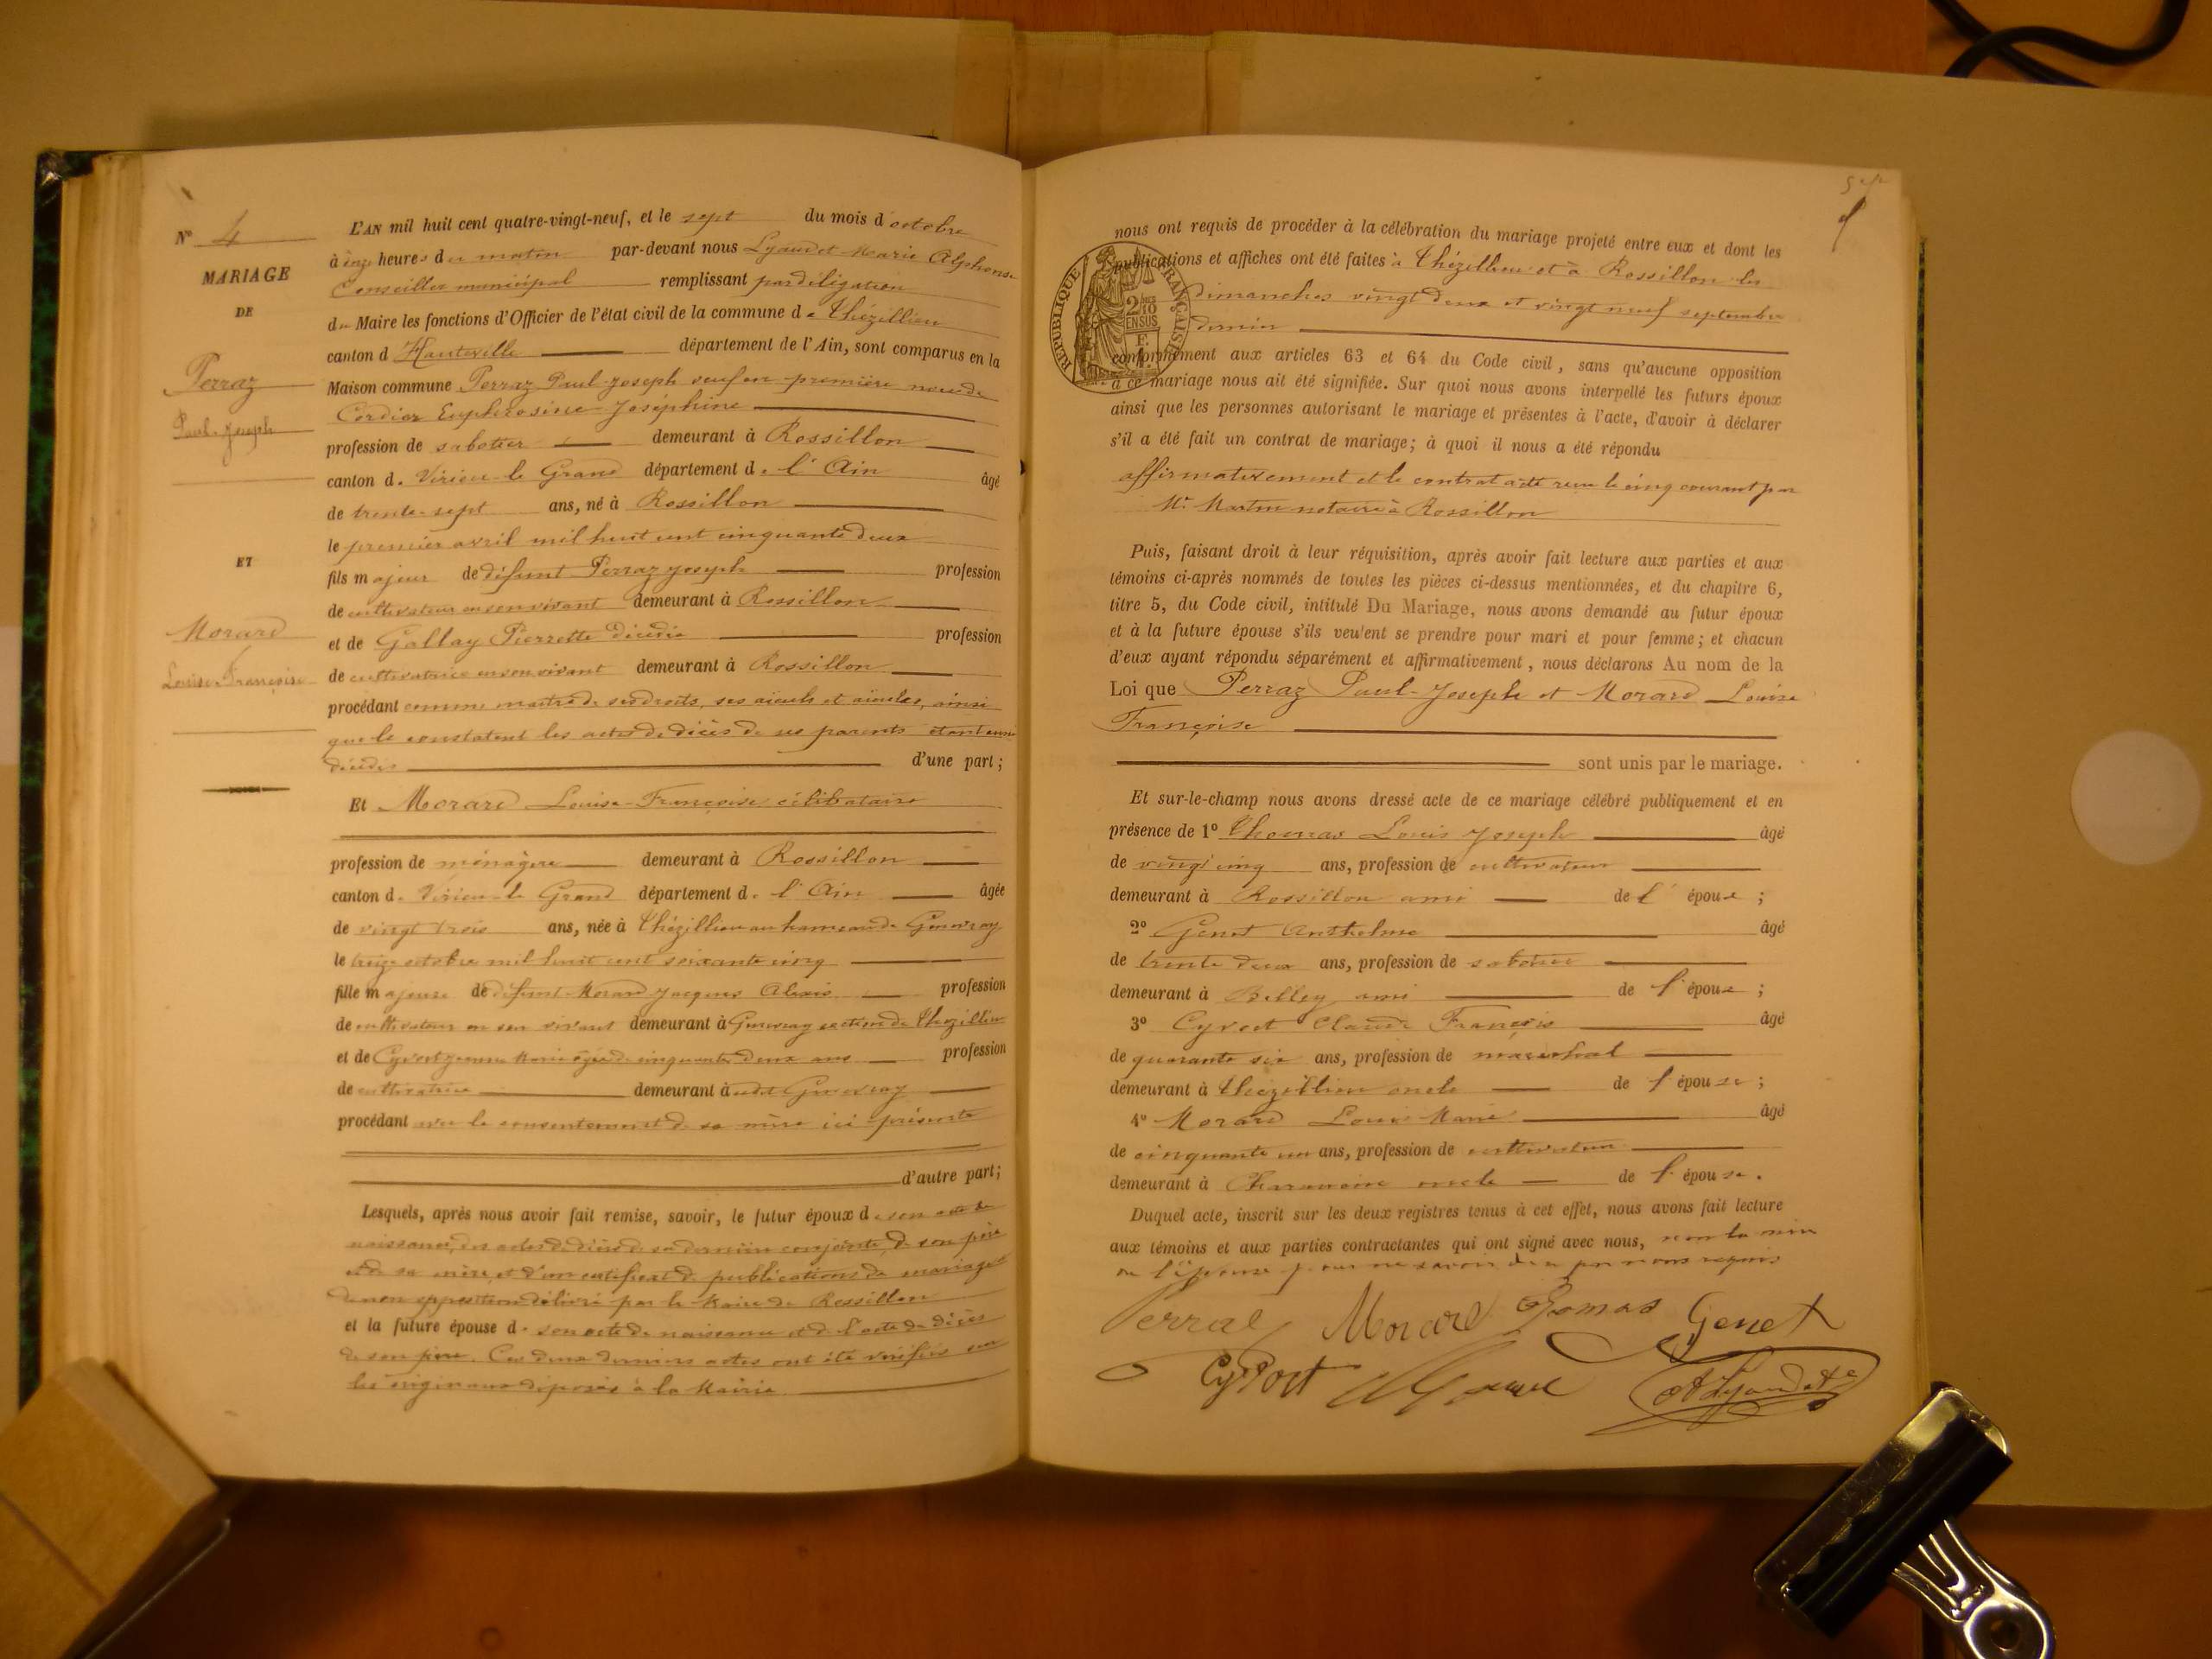 N° 4
MARIAGE
DE
Perraz
Paul-Joseph
ET
Morard
Louise-Françoise
L'AN mil huit cent quatre-vingt-neuf, et le sept du mois d'octobre
à onze heures du matin par-devant nous Lyaudet Marie Alphonse
Conseiller municipal remplissant par délégation
du Maire les fonctions d'Officier de l'état civil de la commune de Thézillieu
canton d Hauteville département de l'Ain, sont comparus en la
Maison commune Perraz Paul-Joseph veuf en première noce de
Cordier Euphrosine-Joséphine
profession de sabotier demeurant à Rossillon
canton de Virieu-le Grand département de l'Ain âgé
de trente-sept ans, né à Rossillon
le premier avril mil huit cent cinquante deux
fils majeur de défunt Perraz Joseph profession
de cultivateur en son vivant demeurant à Rossillon
et de Gallay Pierrette décédée profession
de cultivatrice en son vivant demeurant à Rossillon
procédant comme maître de ses droits, ses aïeuls et aïeules, ainsi
que le constatent les actes de décès de ses parents étant aussi
décédés d'une part;
Et Morard Louise-Françoise célibataire
profession de ménagère demeurant à Rossillon
canton de Virieu-le Grand département de l'Ain âgée
de vingt trois ans, née à Thézillieu au hameau de
le treize octobre mil huit cent soixante cinq
fille majeure de défunt Morard Jacques Alexis profession
de cultivateur en son vivant demeurant à section de Thézillieu
et de Cyvoct Jeanne Marie âgée de cinquante deux ans profession
de cultivatrice demeurant à
procédant avec le consentement de sa mère ici présente
d'autre part;
Lesquels, après nous avoir fait remise, savoir, le futur époux de son acte de
naissance, des actes de décès de sa dernière conjointe, de son père
et de sa mère et d'un certificat de publications de mariage
de non opposition délivré par le Maire de Rossillon
et la future épouse de son acte de naissance et de l'acte de décès
de son père. Ces deux derniers actes ont été vérifiés sur
les originaux déposés à la Mairie
nous ont requis de procéder à la célébration du mariage projeté entre eux et dont les
publications et affiches ont été faites à Thézillieu et à Rossillon les
dimanches vingt deux et vingt neuf septembre
dernier
RÉPUBLIQUE FRANÇAISE
conformément aux articles 63 et 64 du Code civil, sans qu'aucune opposition
à ce mariage nous ait été signifiée. Sur quoi nous avons interpellé les futurs époux
ainsi que les personnes autorisant le mariage et présentes à l'acte, d'avoir à déclarer
s'il a été fait un contrat de mariage; à quoi il nous a été répondu
affirmativement et le contrat a été reçu le cinq courant par
Me Martin notaire à Rossillon
Puis, faisant droit à leur réquisition, après avoir fait lecture aux parties et aux
témoins ci-après nommés de toutes les pièces ci-dessus mentionnées, et du chapitre 6,
titre 5, du Code civil, intitulé Du Mariage, nous avons demandé au futur époux
et à la future épouse s'ils veulent se prendre pour mari et pour femme; et chacun
d'eux ayant répondu séparément et affirmativement, nous déclarons Au nom de la
Loi que Perraz Paul-Joseph et Morard Louise
Françoise
sont unis par le mariage.
Et sur-le-champ nous avons dressé acte de ce mariage célébré publiquement et en
présence de 1° Thomas Louis Joseph âgé
de vingt cinq ans, profession de cultivateur
demeurant à Rossillon ami de l'épouse;
2° Genet Anthelme âgé
de trente deux ans, profession de sabotier
demeurant à Belley ami de l'épouse;
3° Cyvoct Claude François âgé
de quarante six ans, profession de maréchal
demeurant à Thézillieu oncle de l'épouse;
4° Morard Louis Marie âgé
de cinquante un ans, profession de cultivateur
demeurant à oncle de l'épouse.
Duquel acte, inscrit sur les deux registres tenus à cet effet, nous avons fait lecture
aux témoins et aux parties contractantes qui ont signé avec nous, non la mère
de l'épouse pour ne savoir de ce par nous requis
Perraz Morard Thomas Genet
Cyvoct